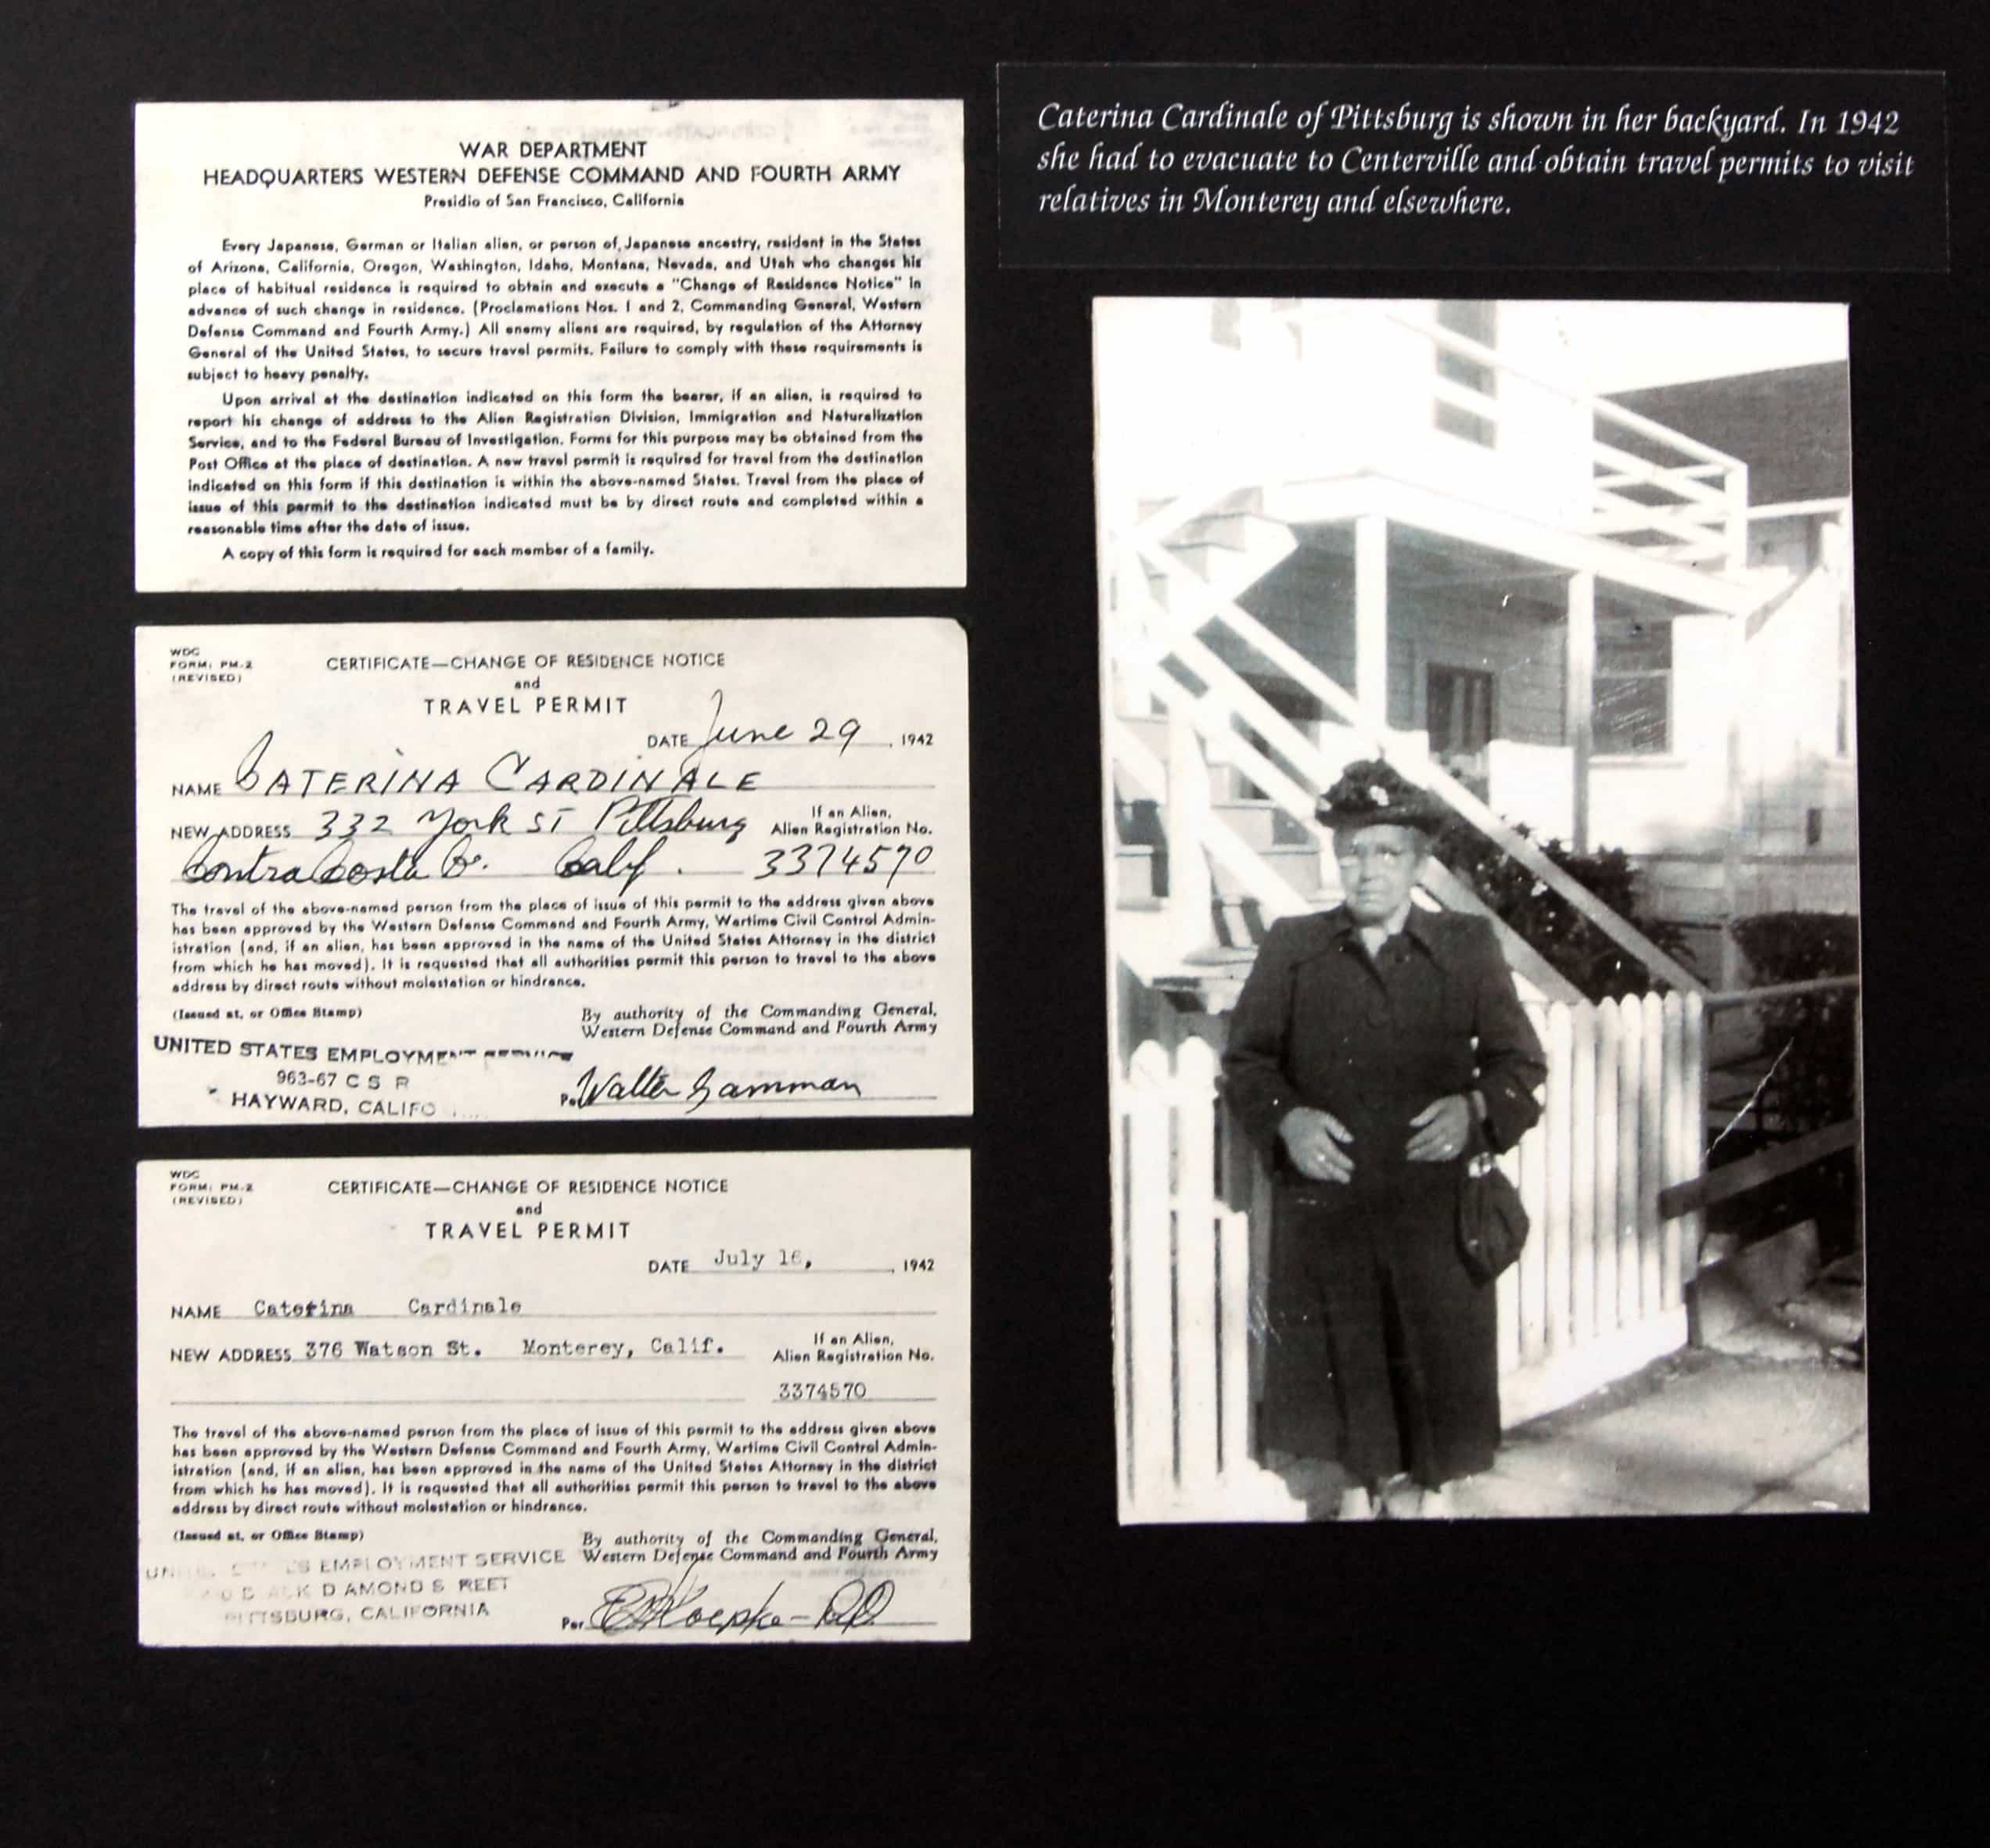 WAR DEPARTMENT
HEADQUARTERS WESTERN DEFENSE COMMAND AND FOURTH ARMY
Presidio of San Francisco, California
Every Japanese, German or Italian alien, or person of Japanese ancestry, resident in the States
of Arizona, California, Oregon, Washington, Idaho, Montana, Nevada, and Utah who changes his
place of habitual residence is required to obtain and execute a "Change of Residence Notice" in
advance of such change in residence. (Proclamations Nos. 1 and 2, Commanding General, Western
Defense Command and Fourth Army.) All enemy aliens are required, by regulation of the Attorney
General of the United States, to secure travel permits. Failure to comply with these requirements is
subject to heavy penalty.
Upon arrival at the destination indicated on this form the bearer, if an alien, is required to
report his change of address to the Alien Registration Division, Immigration and Naturalization
Service, and to the Federal Bureau of Investigation. Forms for this purpose may be obtained from the
Post Office at the place of destination. A new travel permit is required for travel from the destination
indicated on this form if this destination is within the above-named States. Travel from the place of
issue of this permit to the destination indicated must be by direct route and completed within a
reasonable time after the date of issue.
A copy of this form is required for each member of a family.
WDC
FORM: PM-2
(REVISED)
CERTIFICATE—CHANGE OF RESIDENCE NOTICE
and
TRAVEL PERMIT
DATE June 29, 1942
NAME CATERINA CARDINALE
NEW ADDRESS 332 York ST Pittsburg
If an Alien,
Alien Registration No.
Contra Costa Co. Calif. 3374570
The travel of the above-named person from the place of issue of this permit to the address given above
has been approved by the Western Defense Command and Fourth Army, Wartime Civil Control Admin-
istration (and, if an alien, has been approved in the name of the United States Attorney in the district
from which he has moved). It is requested that all authorities permit this person to travel to the above
address by direct route without molestation or hindrance.
(Issued at, or Office Stamp)
By authority of the Commanding General,
Western Defense Command and Fourth Army
UNITED STATES EMPLOYMENT SERVICE
963-67 C S R
HAYWARD, CALIFO
Per Walter Gamman
WDC
FORM: PM-2
(REVISED)
CERTIFICATE—CHANGE OF RESIDENCE NOTICE
and
TRAVEL PERMIT
DATE July 16, 1942
NAME Caterina Cardinale
NEW ADDRESS 376 Watson St. Monterey, Calif.
If an Alien,
Alien Registration No.
3374570
The travel of the above-named person from the place of issue of this permit to the address given above
has been approved by the Western Defense Command and Fourth Army, Wartime Civil Control Admin-
istration (and, if an alien, has been approved in the name of the United States Attorney in the district
from which he has moved). It is requested that all authorities permit this person to travel to the above
address by direct route without molestation or hindrance.
(Issued at, or Office Stamp)
By authority of the Commanding General,
Western Defense Command and Fourth Army
EMPLOYMENT SERVICE
PITTSBURG, CALIFORNIA
Per
Caterina Cardinale of Pittsburg is shown in her backyard. In 1942
she had to evacuate to Centerville and obtain travel permits to visit
relatives in Monterey and elsewhere.